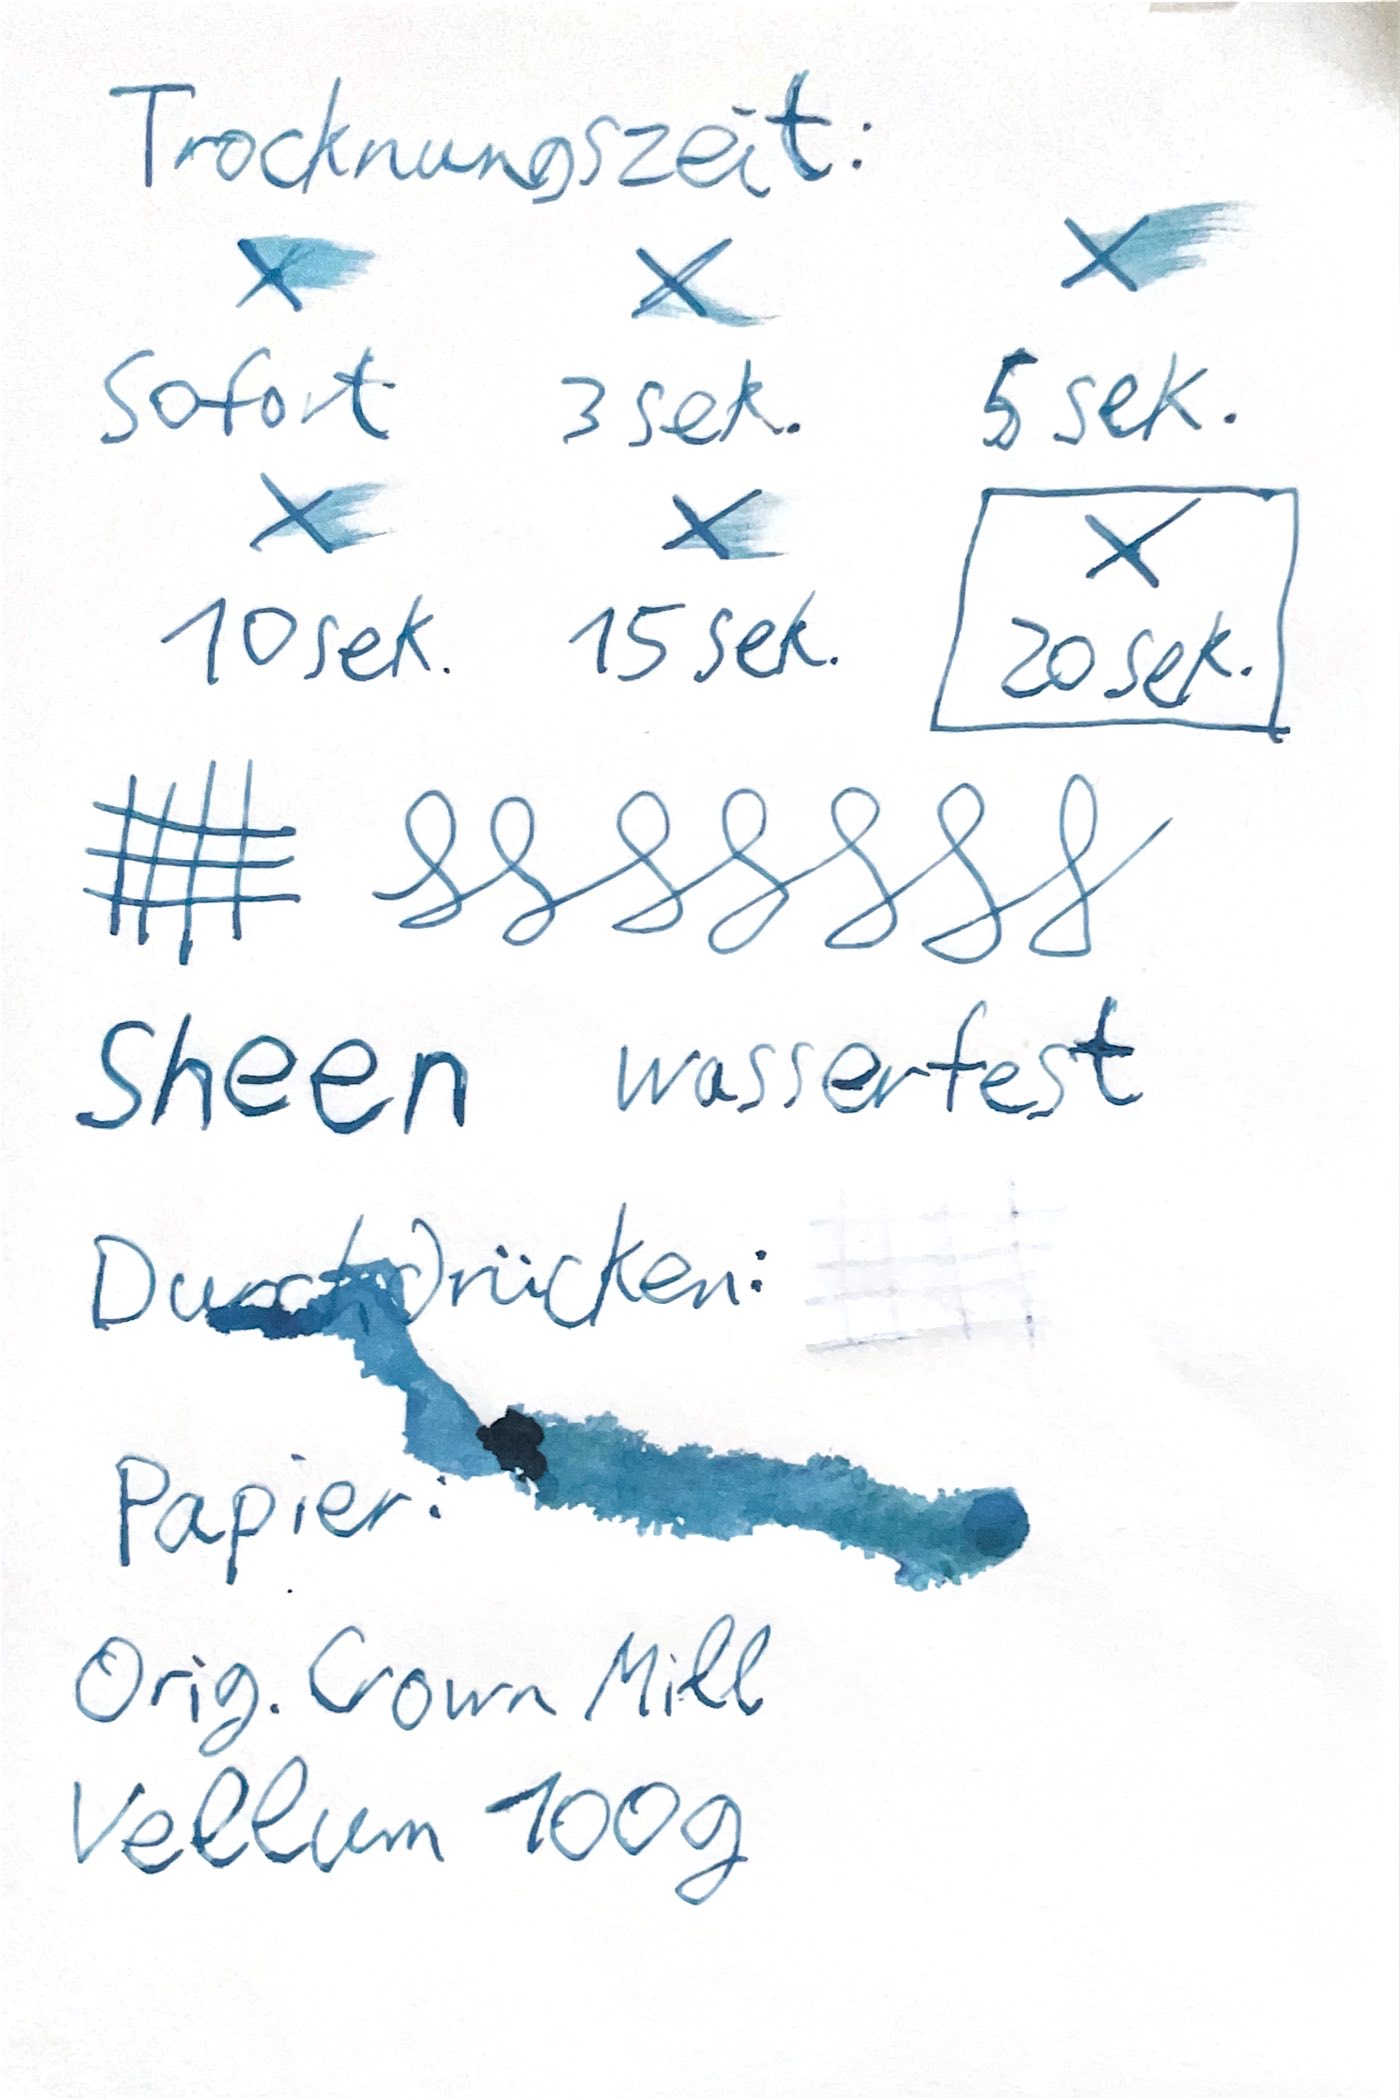 Trocknungszeit:
Sofort 3 sek. 5 sek.
10 sek. 15 sek. 20 sek.
Sheen wasserfest
Durchdrücken:
Papier:
Orig. Crown Mill
Vellum 100g